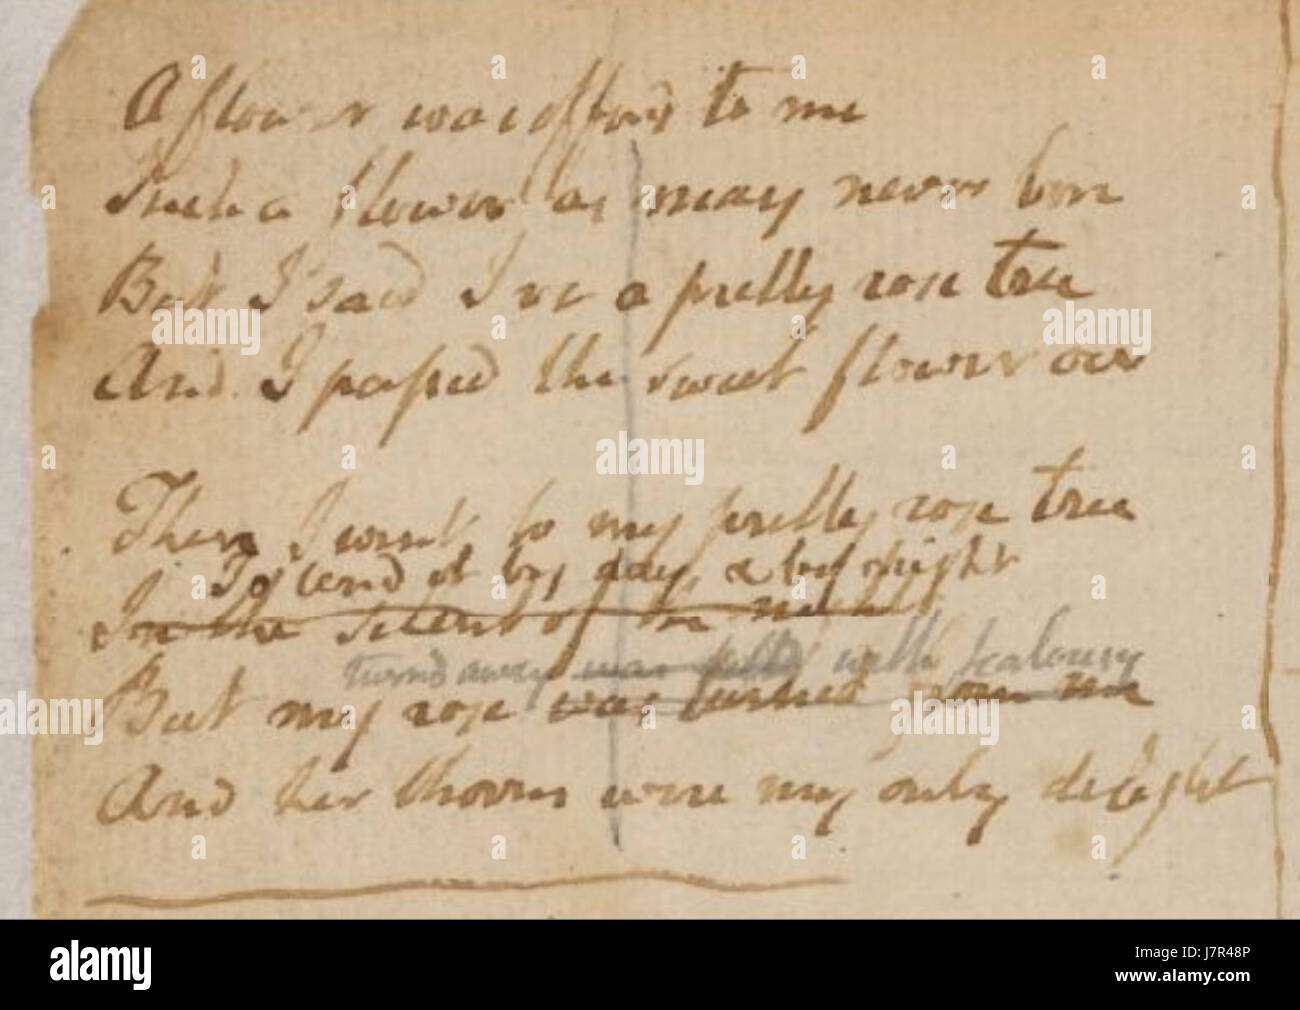 A flower was offerd to me
Such a flower as may never bore
But I said I've a pretty rose tree
And I passed the sweet flower oer
Then I went to my pretty rose tree
To tend it by day, & by night
In the silent of the night
turnd away was filld with jealousy
But my rose was turned from me
And her thorns were my only delight
alamy stock photo
alamy
a
J7R48P
www.alamy.com